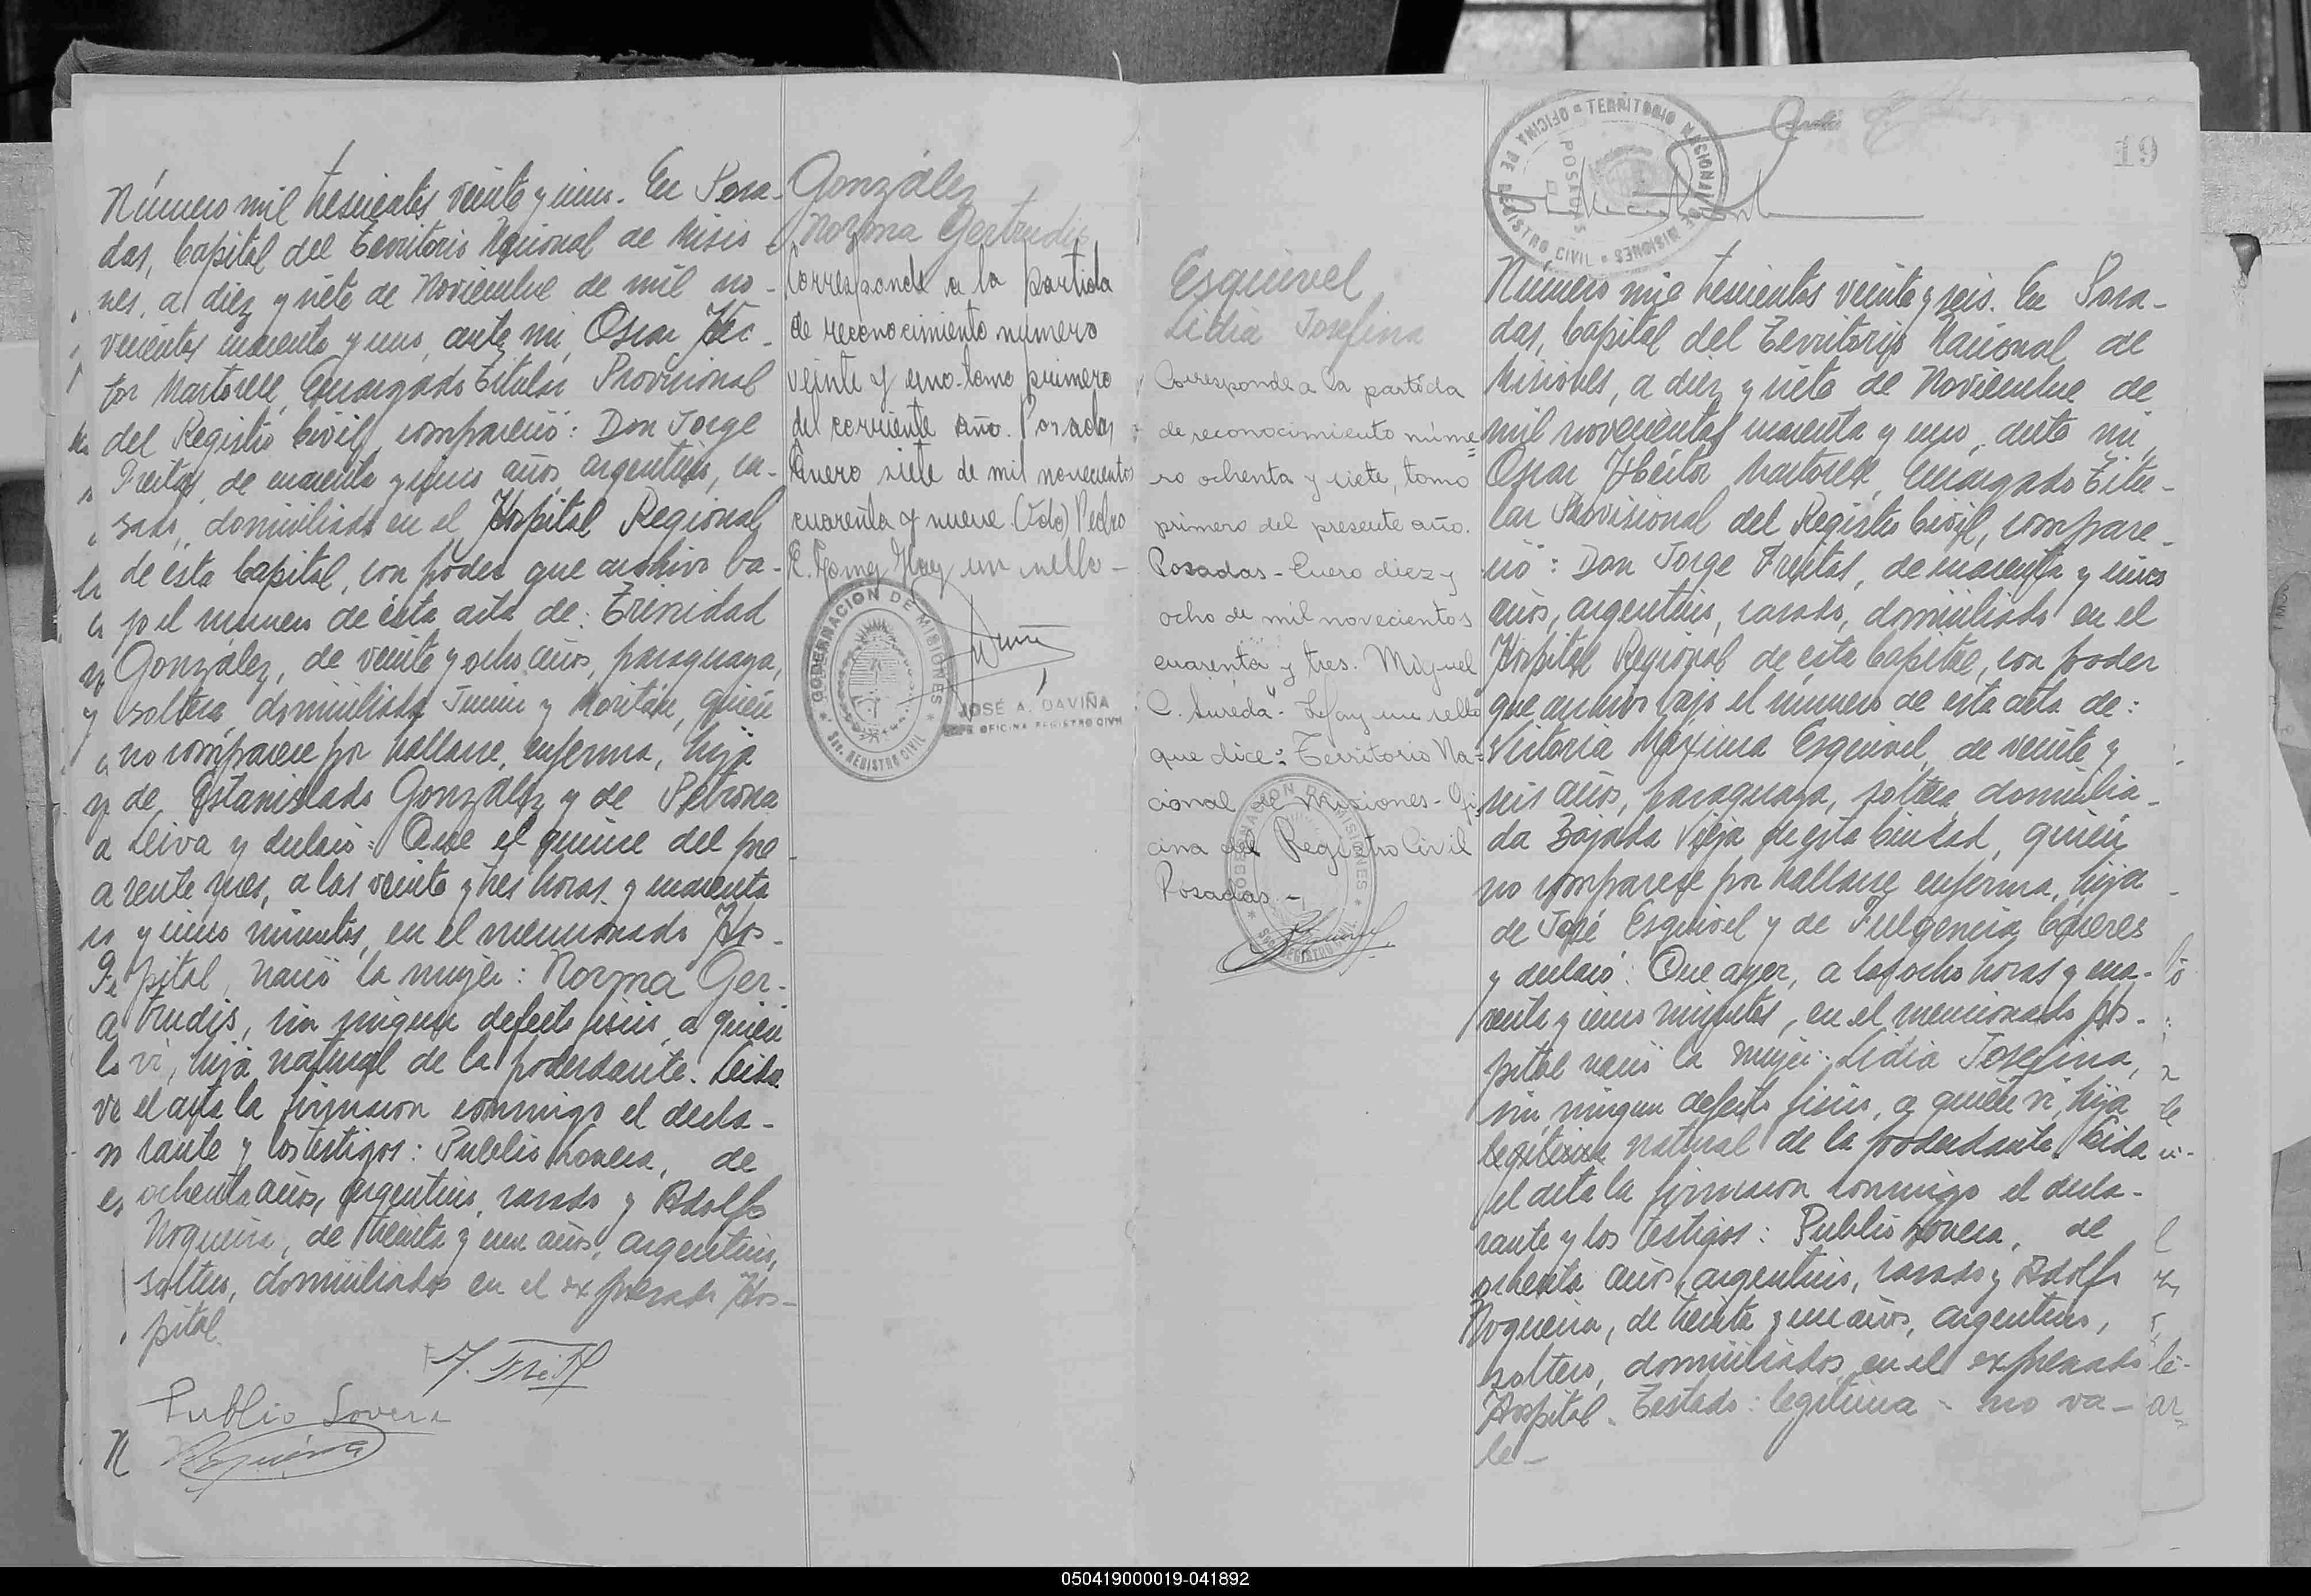 Número mil trescientos veinte y cinco. En Posa-
das, Capital del Territorio Nacional de Misio
nes, a diez y siete de Noviembre de mil no-
vecientos cuarenta y uno, ante mi, Oscar Héc-
tor Martorell, Encargado Titular Provisional
del Registro Civil, compareció: Don Jorge
Freitas, de cuarenta y cinco años, argentino, ca-
sado, domiciliado en el Hospital Regional
de ésta Capital, con poder que archivo ba-
jo el numero de ésta acta de: Trinidad
González, de veinte y ocho años, paraguaya,
soltera, domiciliada Junín y Moritán, quién
no comparece por hallarse enferma, hija
de Estanislado González y de Petrona
Leiva y declaró: Que el quince del pre
sente mes, a las veinte y tres horas y cuarenta
y cinco minutos, en el mencionado Hos-
pital, nació la mujer: Norma Ger-
trudis, sin ningun defecto físico, a quién
vi, hija natural de la poderdante. Leida
el acta la firmaron conmigo el decla-
rante y los testigos: Publio Lovera, de
ochenta años, argentino, casado y Adolfo
Noguera, de treinta y un años, argentino,
soltero, domiciliados en el expresado Hos-
pital.
Publio Lovera
Noguera
González
Norma Gertrudis
Corresponde a la partida
de reconocimiento numero
veinte y uno-tomo primero
del corriente año. Posadas
Enero siete de mil novecientos
cuarenta y nueve (Fdo) Pedro
E. Gomez Hay un sello-
GOBERNACION DE MISIONES
REGISTRO CIVIL
JOSÉ A. DAVIÑA
JEFE OFICINA REGISTRO CIVIL
Esquivel
Lidia Josefina
Corresponde a la partida
de reconocimiento núme=
ro ochenta y siete, tomo
primero del presente año.
Posadas - Enero diez y
ocho de mil novecientos
cuarenta y tres. Miguel
C. Sureda"- Hay un sello
que dice: Territorio Na=
cional de Misiones - Ofi
cina del Registro Civil
Posadas -
GOBERNACION DE MISIONES
REGISTRO CIVIL
OFICINA DE REGISTRO CIVIL = TERRITORIO NACIONAL DE MISIONES
POSADAS
19
Número mil trescientos veinte y seis. En Posa-
das, Capital del Territorio Nacional de
Misiones, a diez y siete de Noviembre de
mil novecientos cuarenta y uno, ante mi,
Oscar Héctor Martorell, Encargado Titu-
lar Provisional del Registro Civil, compare-
ció: Don Jorge Freitas, de cuarenta y cinco
años, argentino, casado, domiciliado en el
Hospital Regional de ésta Capital, con poder
que archivo bajo el número de esta acta de:
Victoria Máxima Esquivel, de veinte y
seis años, paraguaya, soltera, domicilia-
da Bajada Vieja de esta Ciudad, quién
no comparece por hallarse enferma, hija
de José Esquivel y de Fulgencia Cáceres
y declaró: Que ayer, a las ocho horas y cua-
renta y cinco minutos, en el mencionado Hos-
pital nació la mujer: Lidia Josefina,
sin ningun defecto físico, a quién vi, hija
legitima natural de la poderdante. Leida
el acta la firmaron conmigo el decla-
rante y los testigos: Publio Lovera, de
ochenta años, argentino, casado y Adolfo
Noguera, de treinta y un años, argentino,
soltero, domiciliados en el expresado
Hospital. Testado: legitima - no va-
le-
050419000019-041892